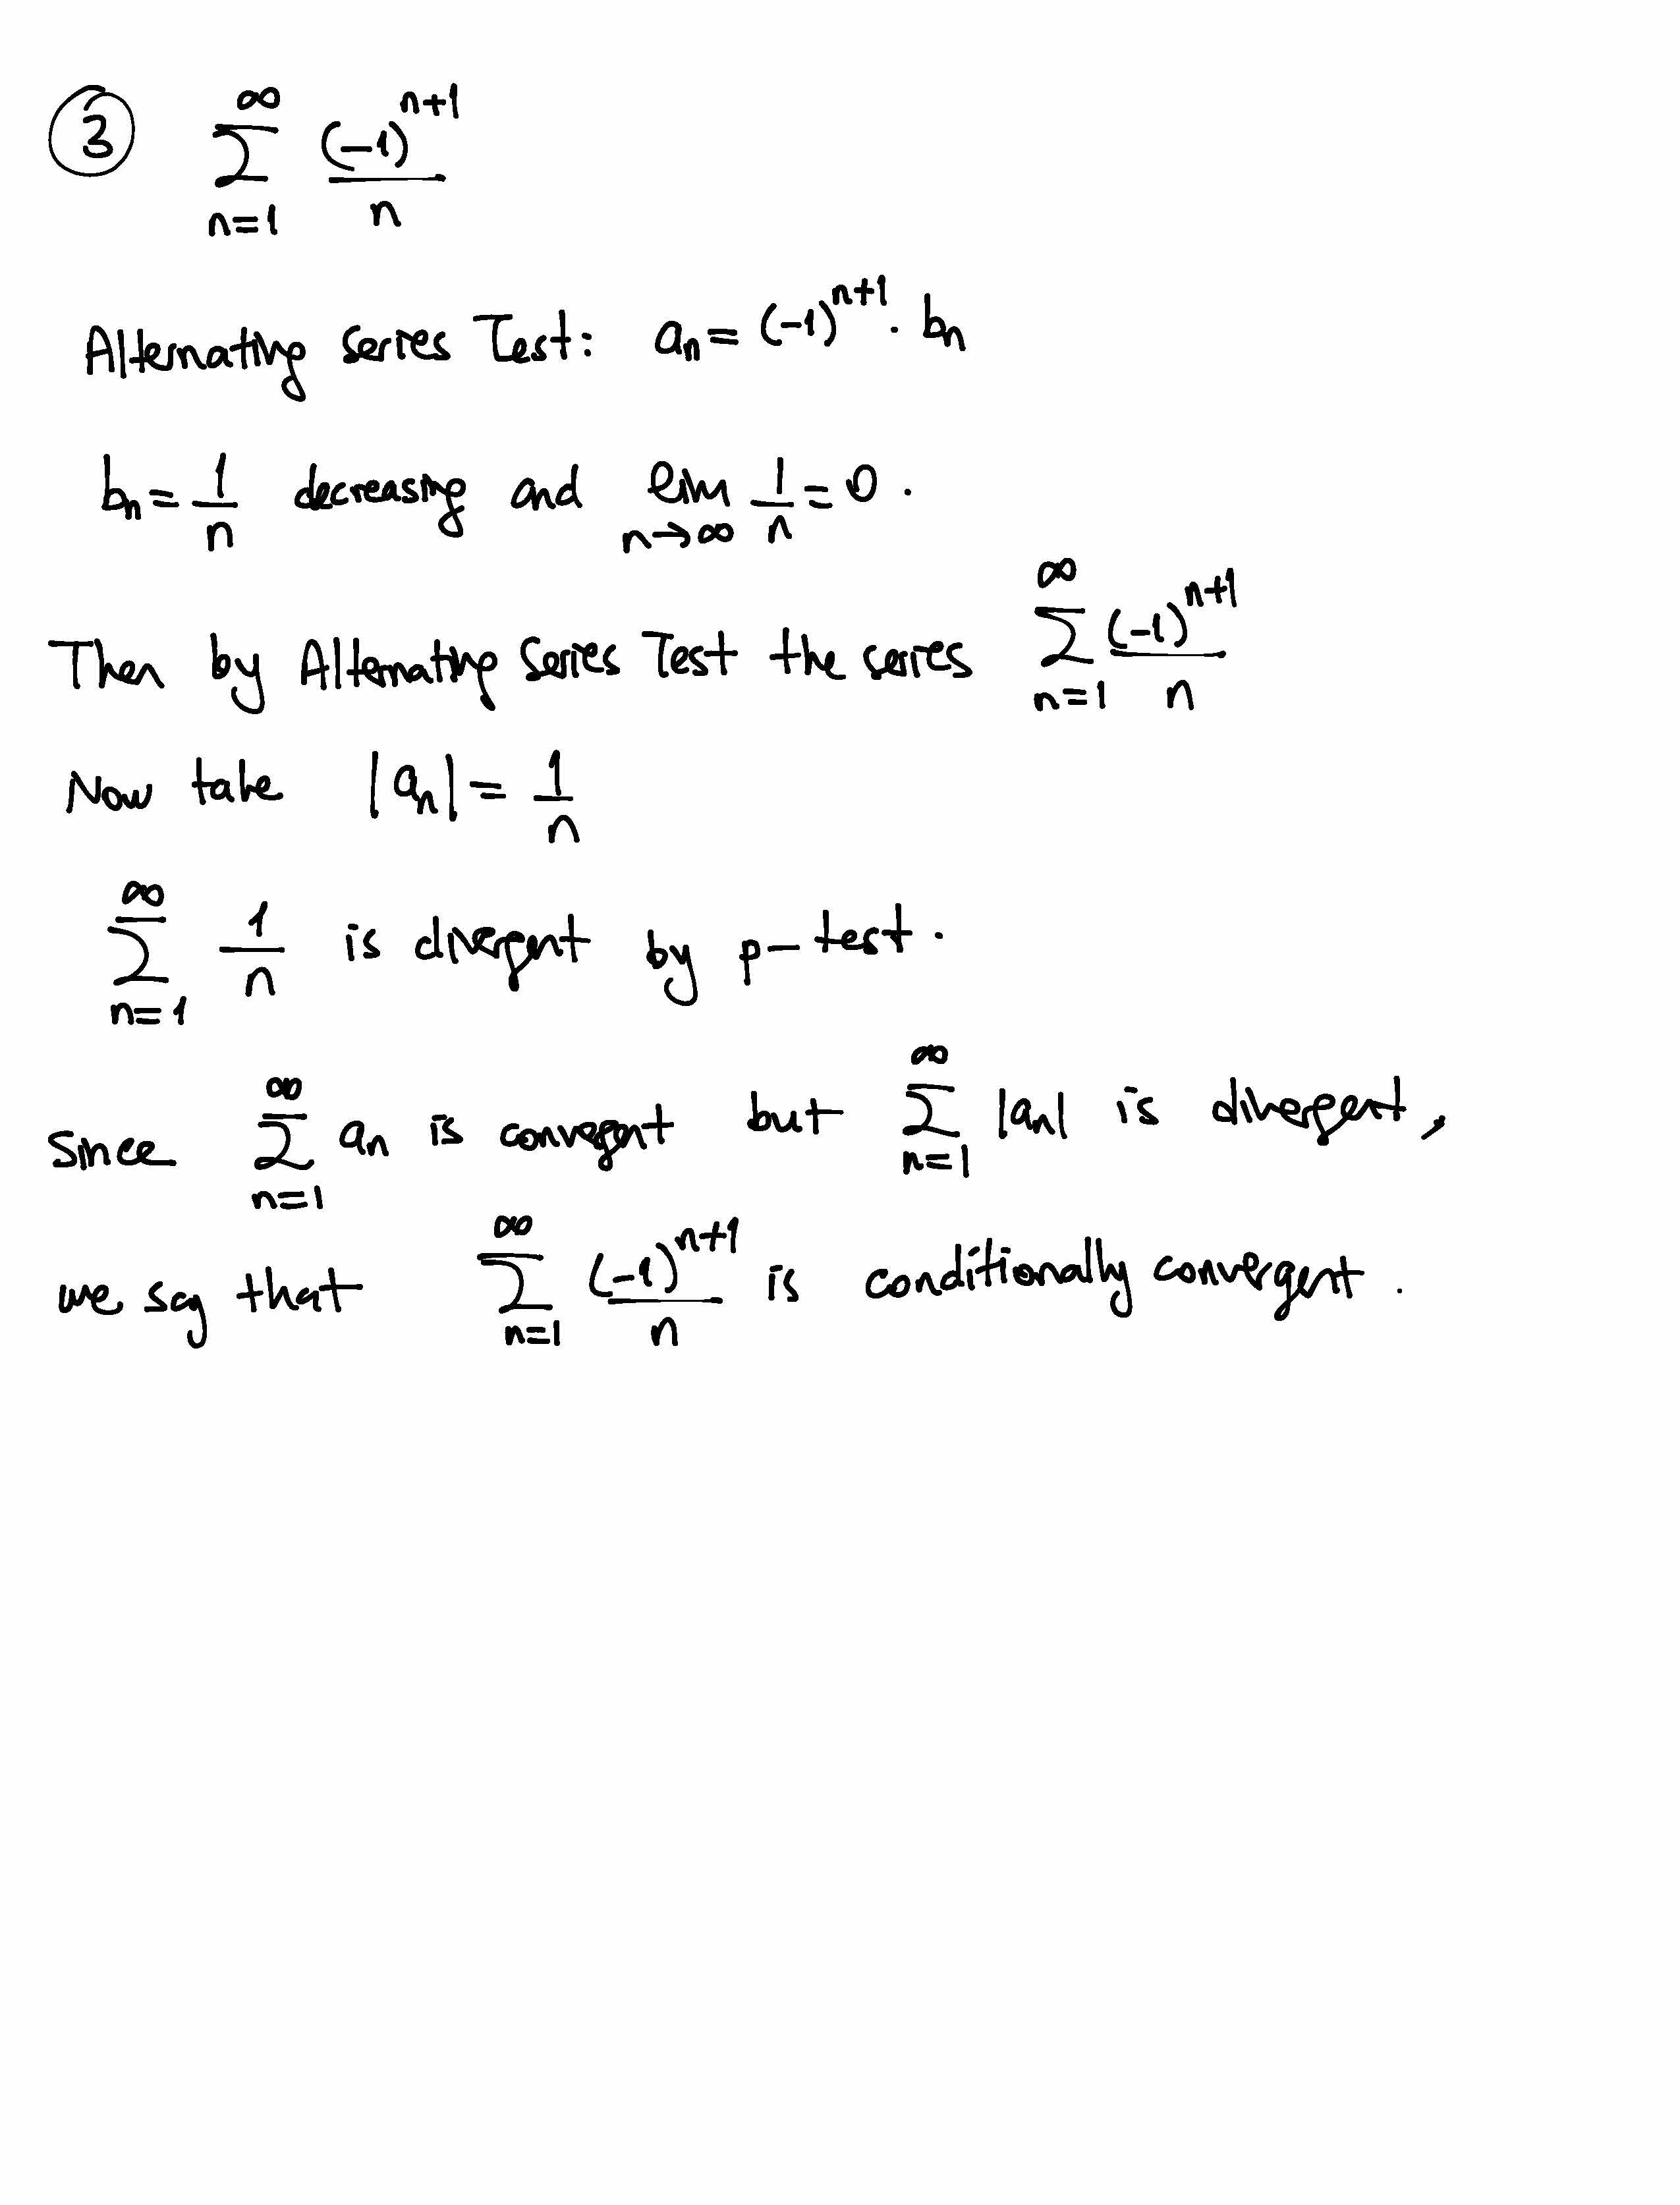 ③ $\sum_{n=1}^{\infty} \frac{(-1)^{n+1}}{n}$
Alternating Series Test: $a_n = (-1)^{n+1} \cdot b_n$
$b_n = \frac{1}{n}$ decreasing and $\lim_{n \to \infty} \frac{1}{n} = 0$.
Then by Alternating Series Test the series $\sum_{n=1}^{\infty} \frac{(-1)^{n+1}}{n}$
Now take $|a_n| = \frac{1}{n}$
$\sum_{n=1}^{\infty} \frac{1}{n}$ is divergent by p-test.
Since $\sum_{n=1}^{\infty} a_n$ is convergent but $\sum_{n=1}^{\infty} |a_n|$ is divergent,
we say that $\sum_{n=1}^{\infty} \frac{(-1)^{n+1}}{n}$ is conditionally convergent.